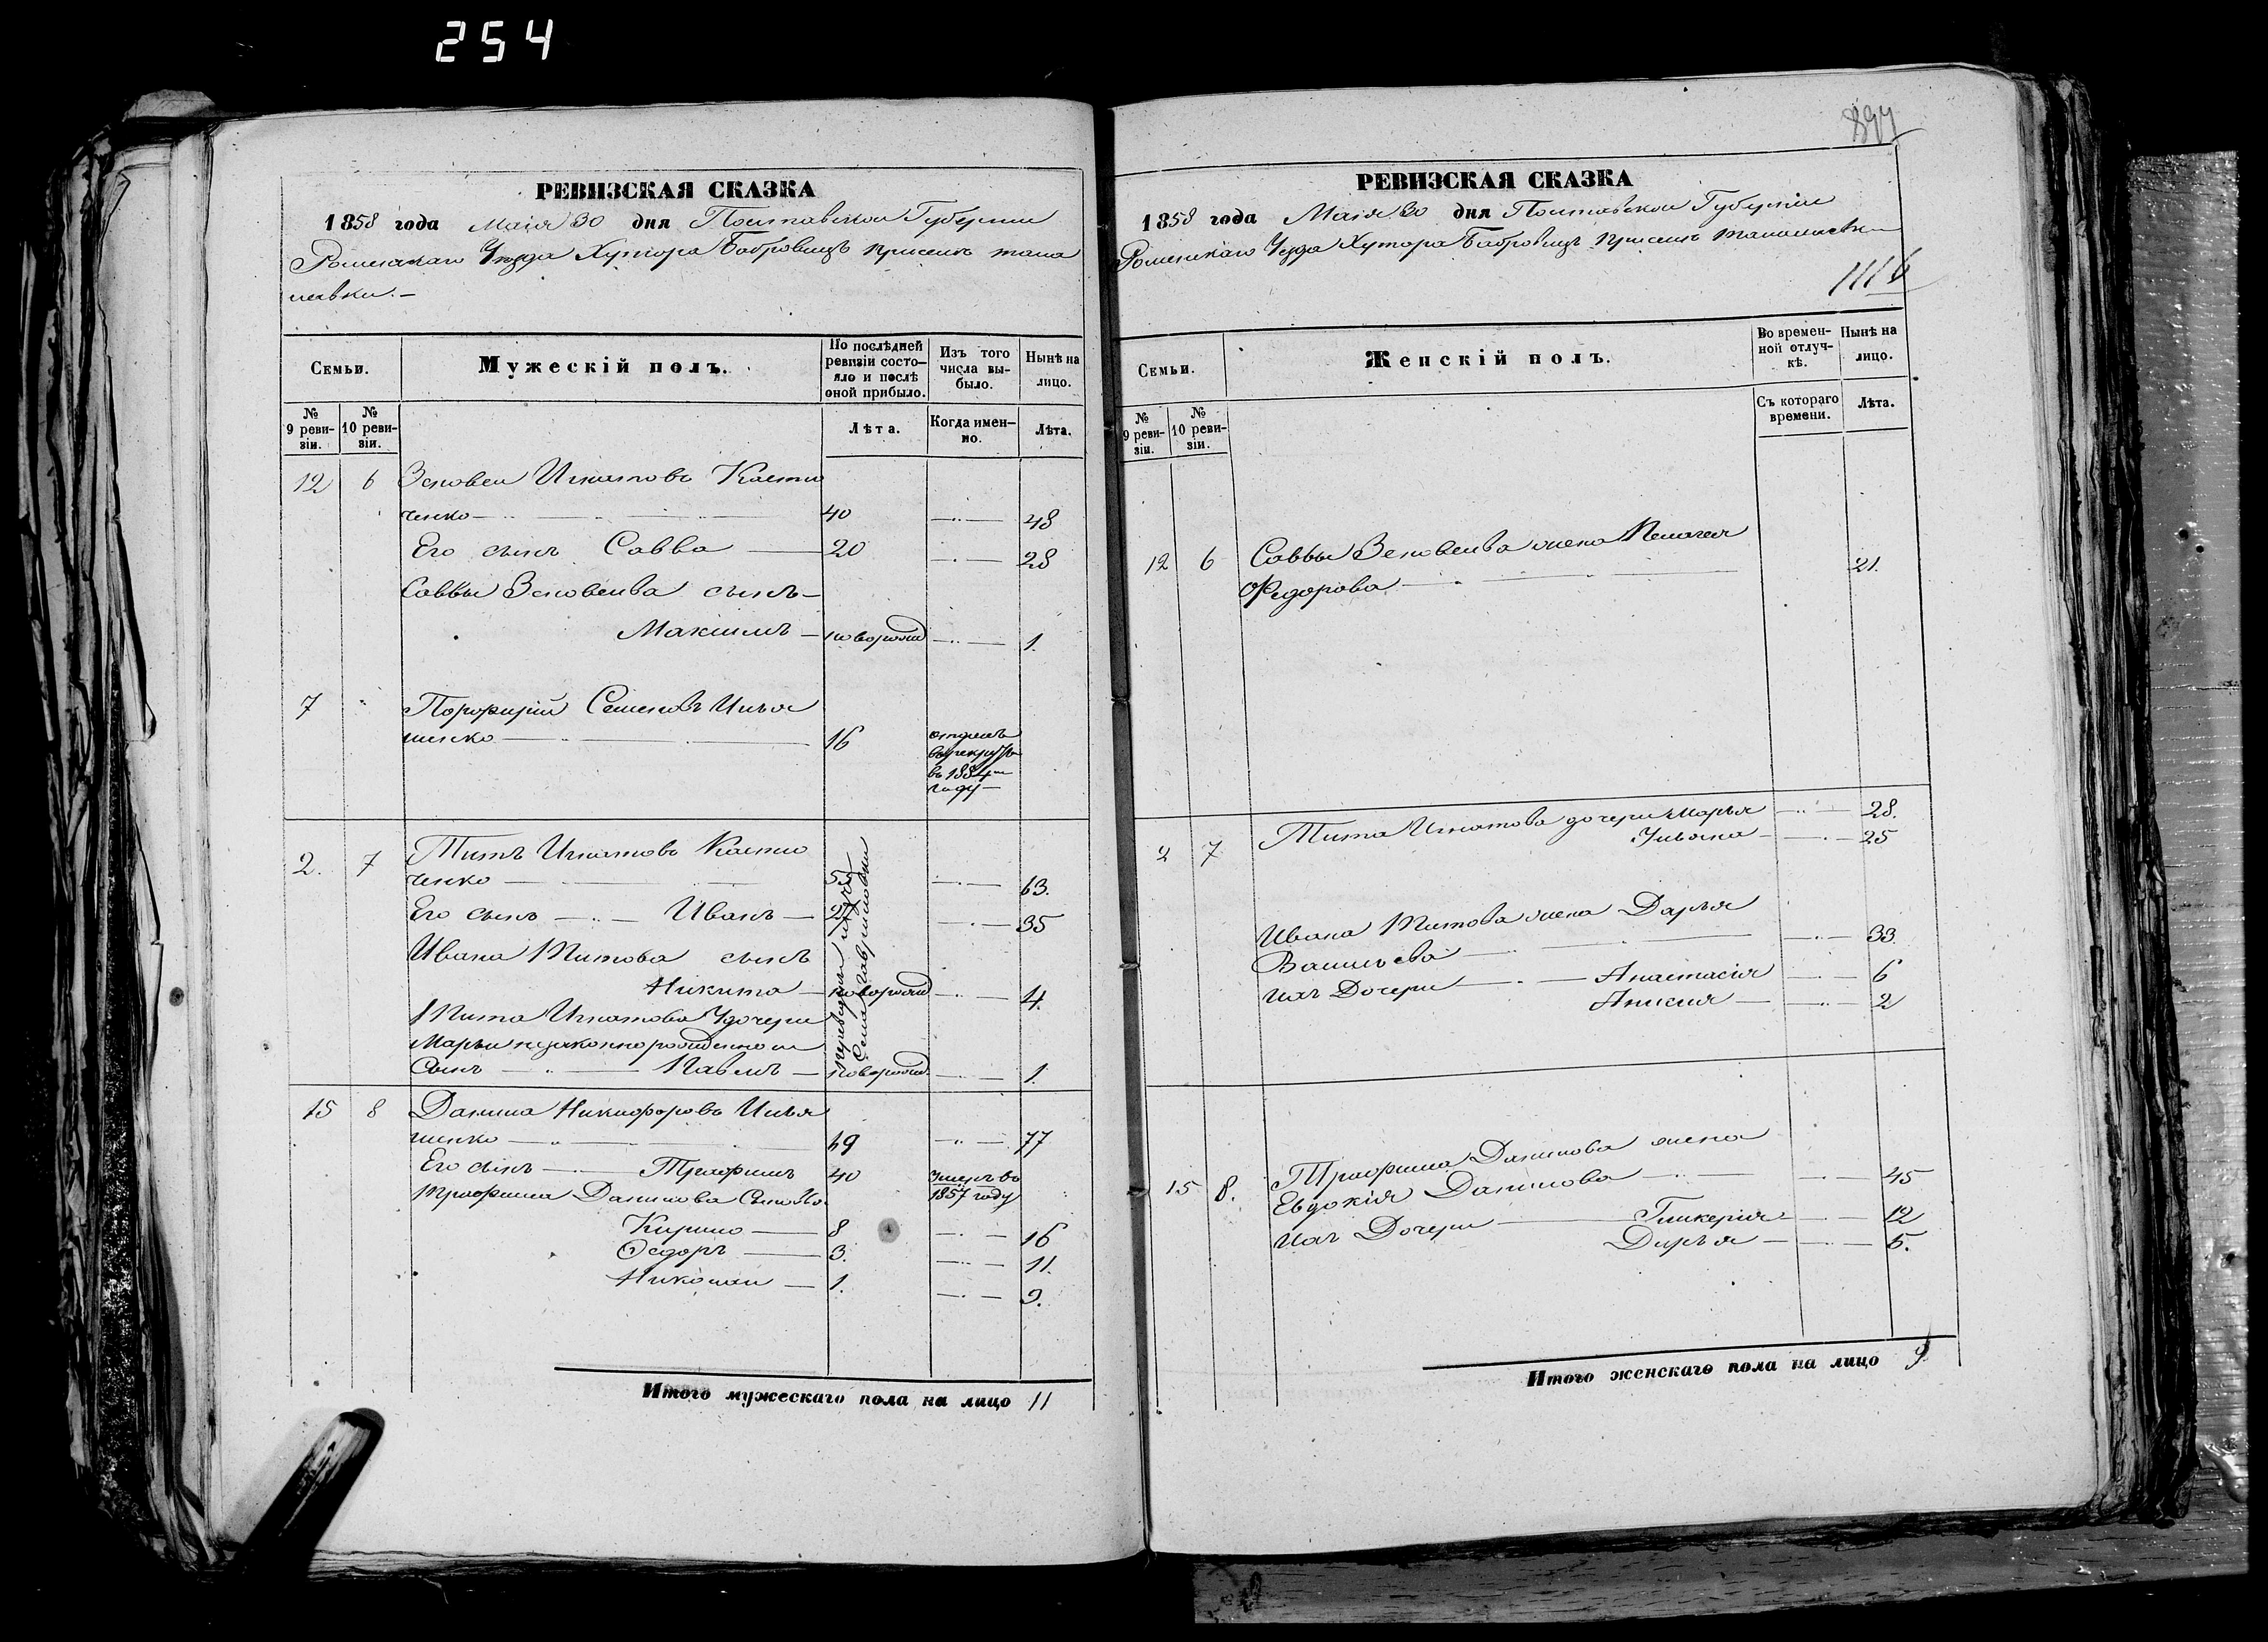 254
РЕВИЗСКАЯ СКАЗКА
1858 года Маія 30 дня Полтавской Губерніи
Роменскаго Уезда Хутора Бобровицъ
левки.
Семьи.
Мужескій полъ.
По послѣдней ревизіи состояло и послѣ оной прибыло.
Изъ того числа выбыло.
Нынѣ на лицо.
№ 9 ревизіи.
№ 10 ревизіи.
Лѣта.
Когда именно.
Лѣта.
12 6 Зеновей Игнатовъ Кости
ченко 40 48
Его сынъ Савва 20 28
Саввы Зеновеива сынъ
Максимъ новорожд 1.
7 Порфирій Семеновъ Илья
шенко 16
отданъ
въ рекруты
въ 1854м
году
2. 7 Титъ Игнатовъ Кости
ченко 55 63.
Его сынъ Иванъ 27 35
Ивана Титова сынъ
Никита новорожд 4.
Тита Игнатова У дочери
Марьи незаконнорожденной
Сынъ Павелъ новорожд. 1.
переведены
Села Гавришовки
15 8 Данила Никифоровъ Илья
шенко 69 77
Его сынъ Трофимъ 40 Умеръ въ
1857 году
Трофима Данилова Сыновья
Кирило 8 16
Федоръ 3. 11.
Николай 1. 9.
Итого мужескаго пола на лицо 11
897
РЕВИЗСКАЯ СКАЗКА
1858 года Маія 30 дня Полтавской Губерніи
Роменскаго Уезда Хутора Бобровицъ
1116
Семьи.
Женскій полъ.
Во временной отлучкѣ.
Нынѣ на лицо.
№ 9 ревизіи.
№ 10 ревизіи.
Съ котораго времени.
Лѣта.
12 6 Саввы Зеновеива жена Пелагея
Федорова 21.
2 7 Тита Игнатова дочери Марья 28.
Ульяна 25
Ивана Титова жена Дарья
Васильева 33.
Ихъ Дочери Анастасія 6
Анисия 2
15 8. Трофима Данилова жена
Евдокія Данилова 45
Ихъ Дочери Гликерія 12
Дарья 5.
Итого женскаго пола на лицо 9